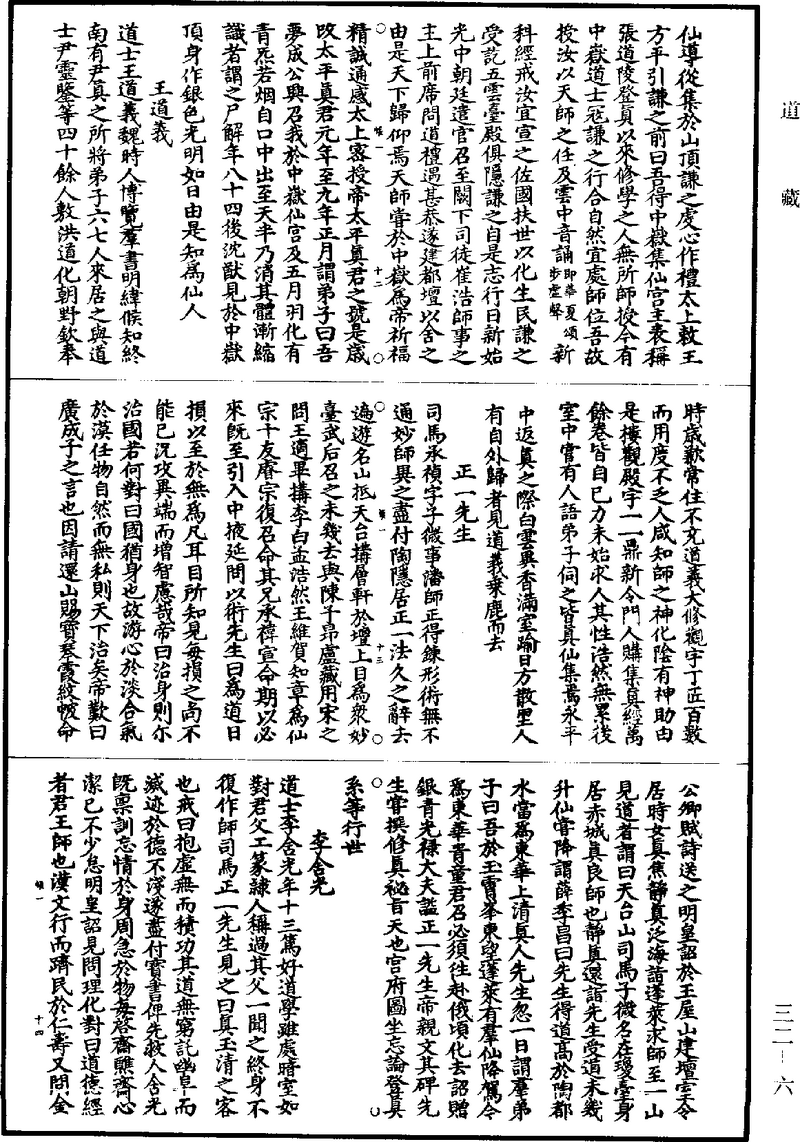 道藏
仙導從集於山頂謙之虔心作禮太上敕王
方平引謙之前曰吾得中嶽集仙宮主表稱
張道陵登真以來修學之人無所師授今有
中嶽道士寇謙之行合自然宜處師位吾故
授汝以天師之任及雲中音誦即華夏頌步虛聲新
科經戒汝宜宣之佐國扶世以化生民謙之
受訖五雲臺殿俱隱謙之自是志行日新始
光中朝廷遣官召至闕下司徒崔浩師事之
主上前席問道禮遇甚恭遂建都壇以舍之
由是天下歸仰焉天師嘗於中嶽為帝祈福
精誠通感太上密授帝太平真君之號是歲
改太平真君元年至九年正月謂弟子曰吾
夢成公興召我於中嶽仙宮及五月羽化有
青炁若烟自口中出至天半乃消其體漸縮
識者謂之尸解年八十四後沈猷見於中嶽
頂身作銀色光明如日由是知為仙人
王道義
道士王道義魏時人博覽羣書明緯候知終
南有尹真之所將弟子六七人來居之與道
士尹靈鑒等四十餘人敷洪道化朝野欽奉
時歲歉常住不充道義大修觀宇丁匠百數
而用度不乏人咸知師之神化陰有神助由
是樓觀殿宇一一鼎新令門人購集真經萬
餘卷皆自己力未始求人其性浩然無累後
室中嘗有人語弟子伺之皆真仙集焉永平
中返真之際白雲異香滿室踰日方散里人
有自外歸者見道義乘鹿而去
正一先生
司馬承禎字子微事潘師正得鍊形術無不
通妙師異之盡付陶隱居正一法久之辭去
遍遊名山抵天台搆層軒於壇上目為衆妙
臺武后召之未幾去與陳子昂盧藏用宋之
問王適畢搆李白孟浩然王維賀知章為仙
宗十友睿宗復召命其兄承禕宣命期以必
來既至引入中掖延問以術先生曰為道日
損以至於無為凡耳目所知見每損之尚不
能已況攻異端而增智慮哉帝曰治身則尔
治國若何對曰國猶身也故游心於淡合氣
於漠任物自然而無私則天下治矣帝歎曰
廣成子之言也因請還山賜寶琴霞紋帔命
公卿賦詩送之明皇詔於王屋山建壇室令
居時女真焦靜真泛海詣蓬萊求師至一山
見道者謂曰天台山司馬子微名在瓊臺身
居赤城真良師也靜真還詣先生受道未幾
升仙嘗降謂薛季昌曰先生得道高於陶都
水當為東華上清真人先生忽一日謂羣弟
子曰吾於玉霄峯東望蓬萊有羣仙降駕今
為東華青童君召必須往赴俄頃化去詔贈
銀青光祿大夫諡正一先生帝親文其碑先
生嘗撰修真祕旨天地宮府圖坐忘論登真
系等行世
李含光
道士李含光年十三篤好道學雖處暗室如
對君父工篆隸人稱過其父一聞之終身不
復作師司馬正一先生見之曰真玉清之客
也戒曰抱虛無而積功其道無窮託幽阜而
滅迹於德不深遂盡付寶書俾先救人含光
既稟訓忘情於身周急於物每啓齋醮齋心
潔己不少怠明皇詔見問理化對曰道德經
者君王師也漢文行而躋民於仁壽又問金
三二-六